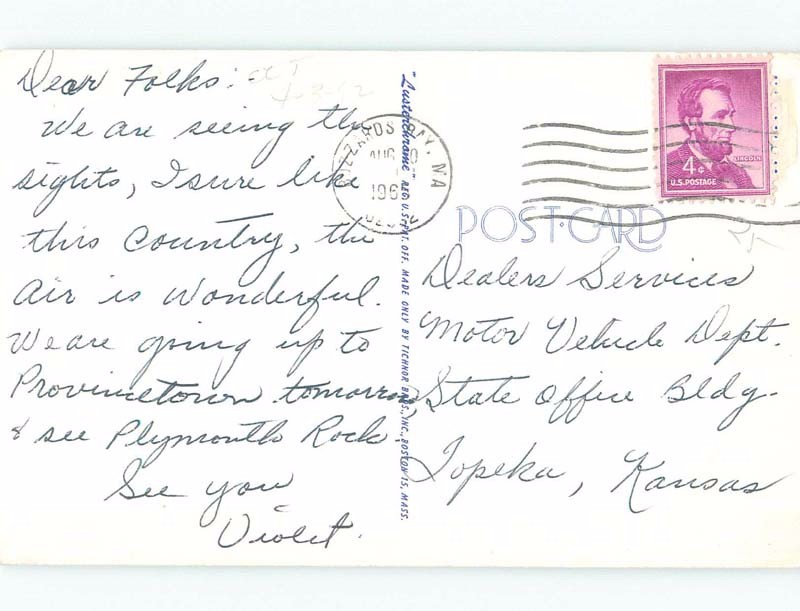 Dear Folks:
We are seeing the
sights, I sure like
this country, the
air is wonderful.
We are going up to
Provincetown tomorrow
& see Plymouth Rock
See you
Violet.
"Lusterchrome" REG. U.S. PAT. OFF. MADE ONLY BY TICHNOR BROS., INC., BOSTON 15, MASS.
ZZARDS BAY, MA
AUG
196
4¢ LINCOLN
U.S. POSTAGE
POST CARD
Dealers Services
Motor Vehicle Dept.
State Office Bldg.
Topeka, Kansas